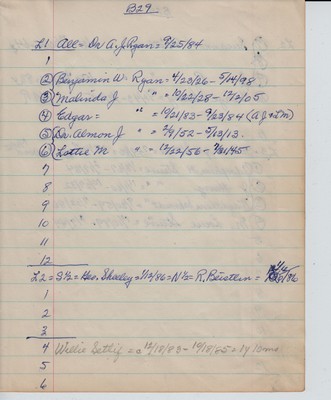 B29
L1 All = Dr A.J. Ryan = 9/25/84
1
② Benjamin W. Ryan = 4/23/26 - 5/14/98
③ Malinda J " = 10/22/28 - 12/2/05
④ Edgar = " = 10/21/83 - 9/23/84 (A.J. & L.M)
⑤ Dr. Almon J " = 2/9/52 - 5/13/13.
⑥ Lottie M " = 12/22/56 - 7/21/45
7
8
9
10
11
12
L2 = S½ = Geo. Sheeley = 1/12/86 = N½ = R. Beistlin =
1
2
3
4 Willie Settig = 2 12/18/83 - 10/18/85 = 1y 10mos
5
6